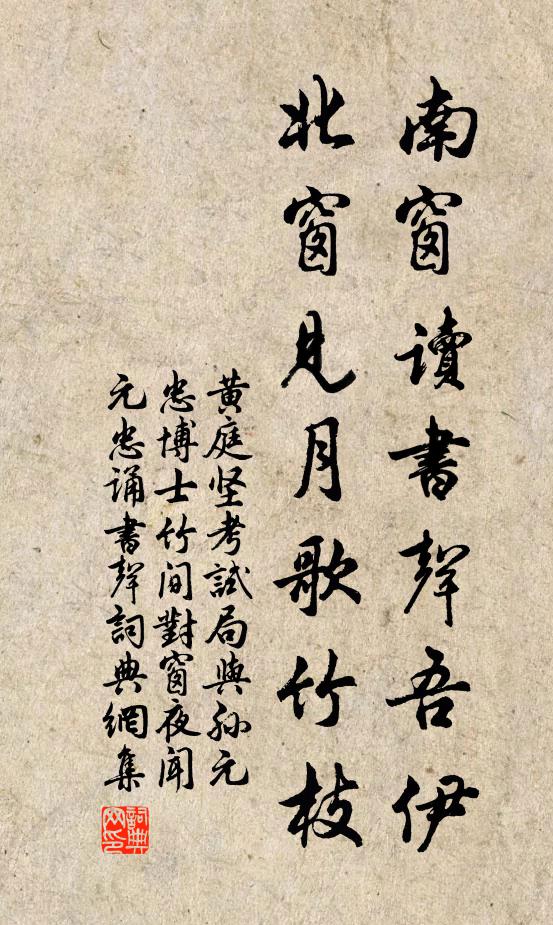 南窗讀書聲吾伊
北窗見月歌竹枝
黄庭坚考試局與孫元
忠博士竹间對窗夜聞
元忠誦書聲詞典網集
詞典
网印